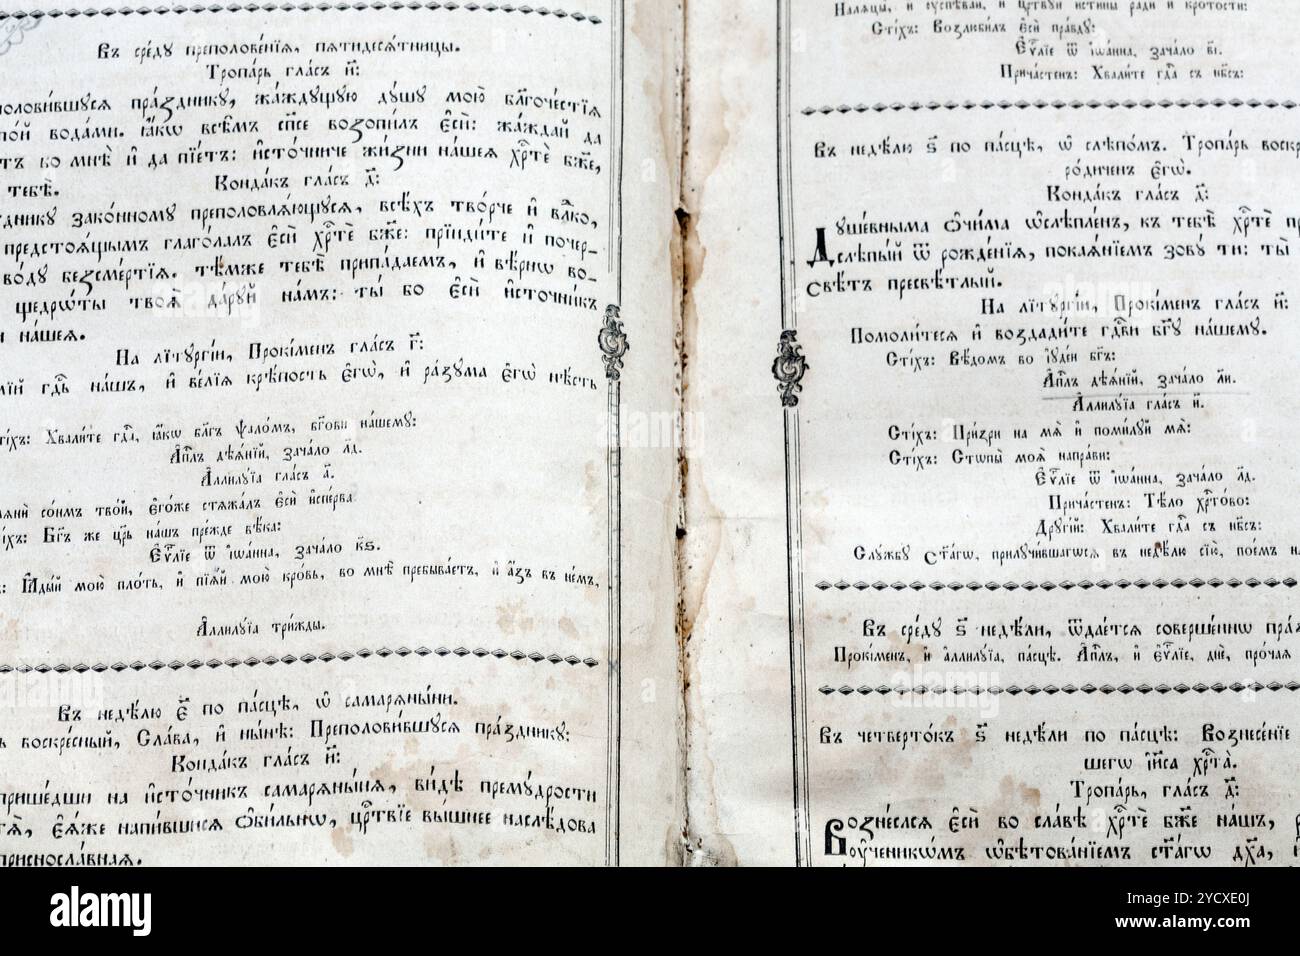 Въ сре́ду преполове́нїѧ, пѧтидесѧ́тницы.
Тропа́рь гла́съ и҃:
пра́здникꙋ, жа́ждꙋщꙋю дꙋ́шꙋ мою̀ бл҃гоче́стїѧ
вода́ми. ꙗ҆́кѡ всѣ̑мъ сп҃се возопи́лъ є҆сѝ: жа́ждай да
ко мнѣ̀ и҆ да пїе́тъ: и҆сто́чниче жи́зни на́шеѧ хрⷭ҇тѐ бж҃е,
тебѣ̀.
Конда́къ гла́съ д҃:
зако́нномꙋ преполовлѧ́ющꙋсѧ, всѣ́хъ тво́рче и҆ влⷣко,
предстоѧ́щымъ глаго́лалъ є҆сѝ хрⷭ҇тѐ бж҃е: прїиди́те и҆ поче́р-
во́дꙋ безсме́ртїѧ. тѣ́мже тебѣ̀ припа́даемъ, и҆ вѣ́рнѡ во-
щедрѡ́ты твоѧ̑ да́рꙋй на́мъ: ты́ бо є҆сѝ и҆сто́чникъ
на́шеѧ.
На лїтꙋргі́и, Прокі́менъ гла́съ г҃:
гдⷭ҇ь на́шъ, и҆ ве́лїѧ крѣ́пость є҆гѡ̀, и҆ ра́зꙋма є҆гѡ̀ нѣ́сть
Хвали́те гдⷭ҇а, ꙗ҆́кѡ бл҃гъ ѱало́мъ, бг҃ови на́шемꙋ:
А҆пⷭ҇лъ дѣѧ́нїй, зача́ло л҃д.
А҆ллилꙋ́їа гла́съ а҃.
со́нмъ тво́й, є҆го́же стѧжа́лъ є҆сѝ и҆спе́рва:
Бг҃ъ же цр҃ь на́шъ пре́жде вѣ́ка:
Є҆ѵⷢ҇лїе ѿ і҆ѡа́нна, зача́ло к҃ѕ.
Ꙗ҆ды́й мою̀ пло́ть, и҆ пїѧ́й мою̀ кро́вь, во мнѣ̀ пребыва́етъ, и҆ а҆́зъ въ не́мъ,
А҆ллилꙋ́їа три́жды.
Въ недѣ́лю є҃ по па́сцѣ, ѡ҆ самарѧны́ни.
воскре́сный, Сла́ва, и҆ ны́нѣ: Преполови́вшꙋсѧ пра́здникꙋ:
Конда́къ гла́съ и҃:
прише́дши на и҆сто́чникъ самарѧны́нѧ, ви́дѣ премꙋ́дрости
є҆ѧ́же напи́вшисѧ ѻ҆би́льнѡ, црⷭ҇твїе вы́шнее наслѣ́дова
присносла́внаѧ.
Налѧцы̀, и҆ ꙋ҆спѣва́й, и҆ црⷭ҇твꙋй и҆́стины ра́ди и҆ кро́тости:
Сті́хъ: Возлюби́лъ є҆сѝ пра́вдꙋ:
Є҆ѵⷢ҇лїе ѿ і҆ѡа́нна, зача́ло в҃і.
Прича́стенъ: Хвали́те гдⷭ҇а съ нб҃съ:
Въ недѣ́лю ѕ҃ по па́сцѣ, ѡ҆ слѣпо́мъ. Тропа́рь
ро́диченъ є҆гѡ̀.
Конда́къ гла́съ д҃:
Дꙋше́вныма ѻ҆чи́ма ѡ҆слѣпле́нъ, къ тебѣ̀ хрⷭ҇тѐ
слѣпы́й ѿ рожде́нїѧ, покаѧ́нїемъ зовꙋ́ ти: ты̀
свѣ́тъ пресвѣ́тлый.
На лїтꙋргі́и, Прокі́менъ гла́съ и҃:
Помоли́тесѧ и҆ воздади́те гдⷭ҇ви бг҃ꙋ на́шемꙋ.
Сті́хъ: Вѣ́домъ во і҆ꙋде́и бг҃ъ:
А҆пⷭ҇лъ дѣѧ́нїй, зача́ло л҃и.
А҆ллилꙋ́їа гла́съ и҃.
Сті́хъ: При́зри на мѧ̀ и҆ поми́лꙋй мѧ̀:
Сті́хъ: Стѡпы̀ моѧ̑ напра́ви:
Є҆ѵⷢ҇лїе ѿ і҆ѡа́нна, зача́ло л҃д.
Прича́стенъ: Тѣ́ло хрⷭ҇то́во:
Дрꙋгі́й: Хвали́те гдⷭ҇а съ нб҃съ:
Слꙋ́жбꙋ ст҃а́гѡ, прилꙋчи́вшагѡсѧ въ недѣ́лю сїю̀, пое́мъ
Въ сре́дꙋ ѕ҃ недѣ́ли, ѿдае́тсѧ соверше́ннѡ
Прокі́менъ, и҆ а҆ллилꙋ́їа, па́сцѣ. А҆пⷭ҇лъ, и҆ є҆ѵⷢ҇лїе, днѐ, про́чаѧ
Въ четверто́къ ѕ҃ недѣ́ли по па́сцѣ: Вознесе́нїе
шегѡ і҆и҃са хрⷭ҇та̀.
Тропа́рь, гла́съ д҃:
Возне́слсѧ є҆сѝ во сла́вѣ хрⷭ҇тѐ бж҃е на́шъ,
ᲂу҆ченикѡ́мъ ѡ҆бѣтова́нїемъ ст҃а́гѡ дх҃а,